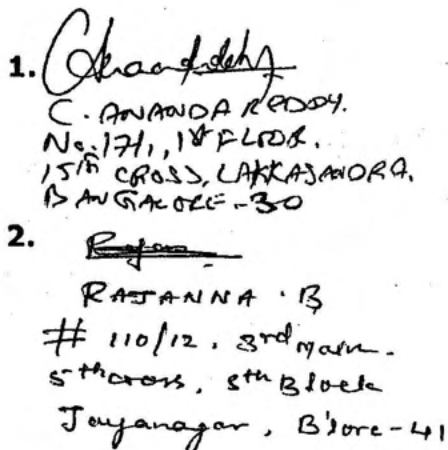 1.
C. ANANDA REDDY.
No. 171, 1st FLOOR.
15th CROSS, LAKKASANDRA.
BANGALORE-30
2.
RAJANNA . B
# 110/12, 3rd Main.
5th cross, 5th Block
Jayanagar, B'lore-41